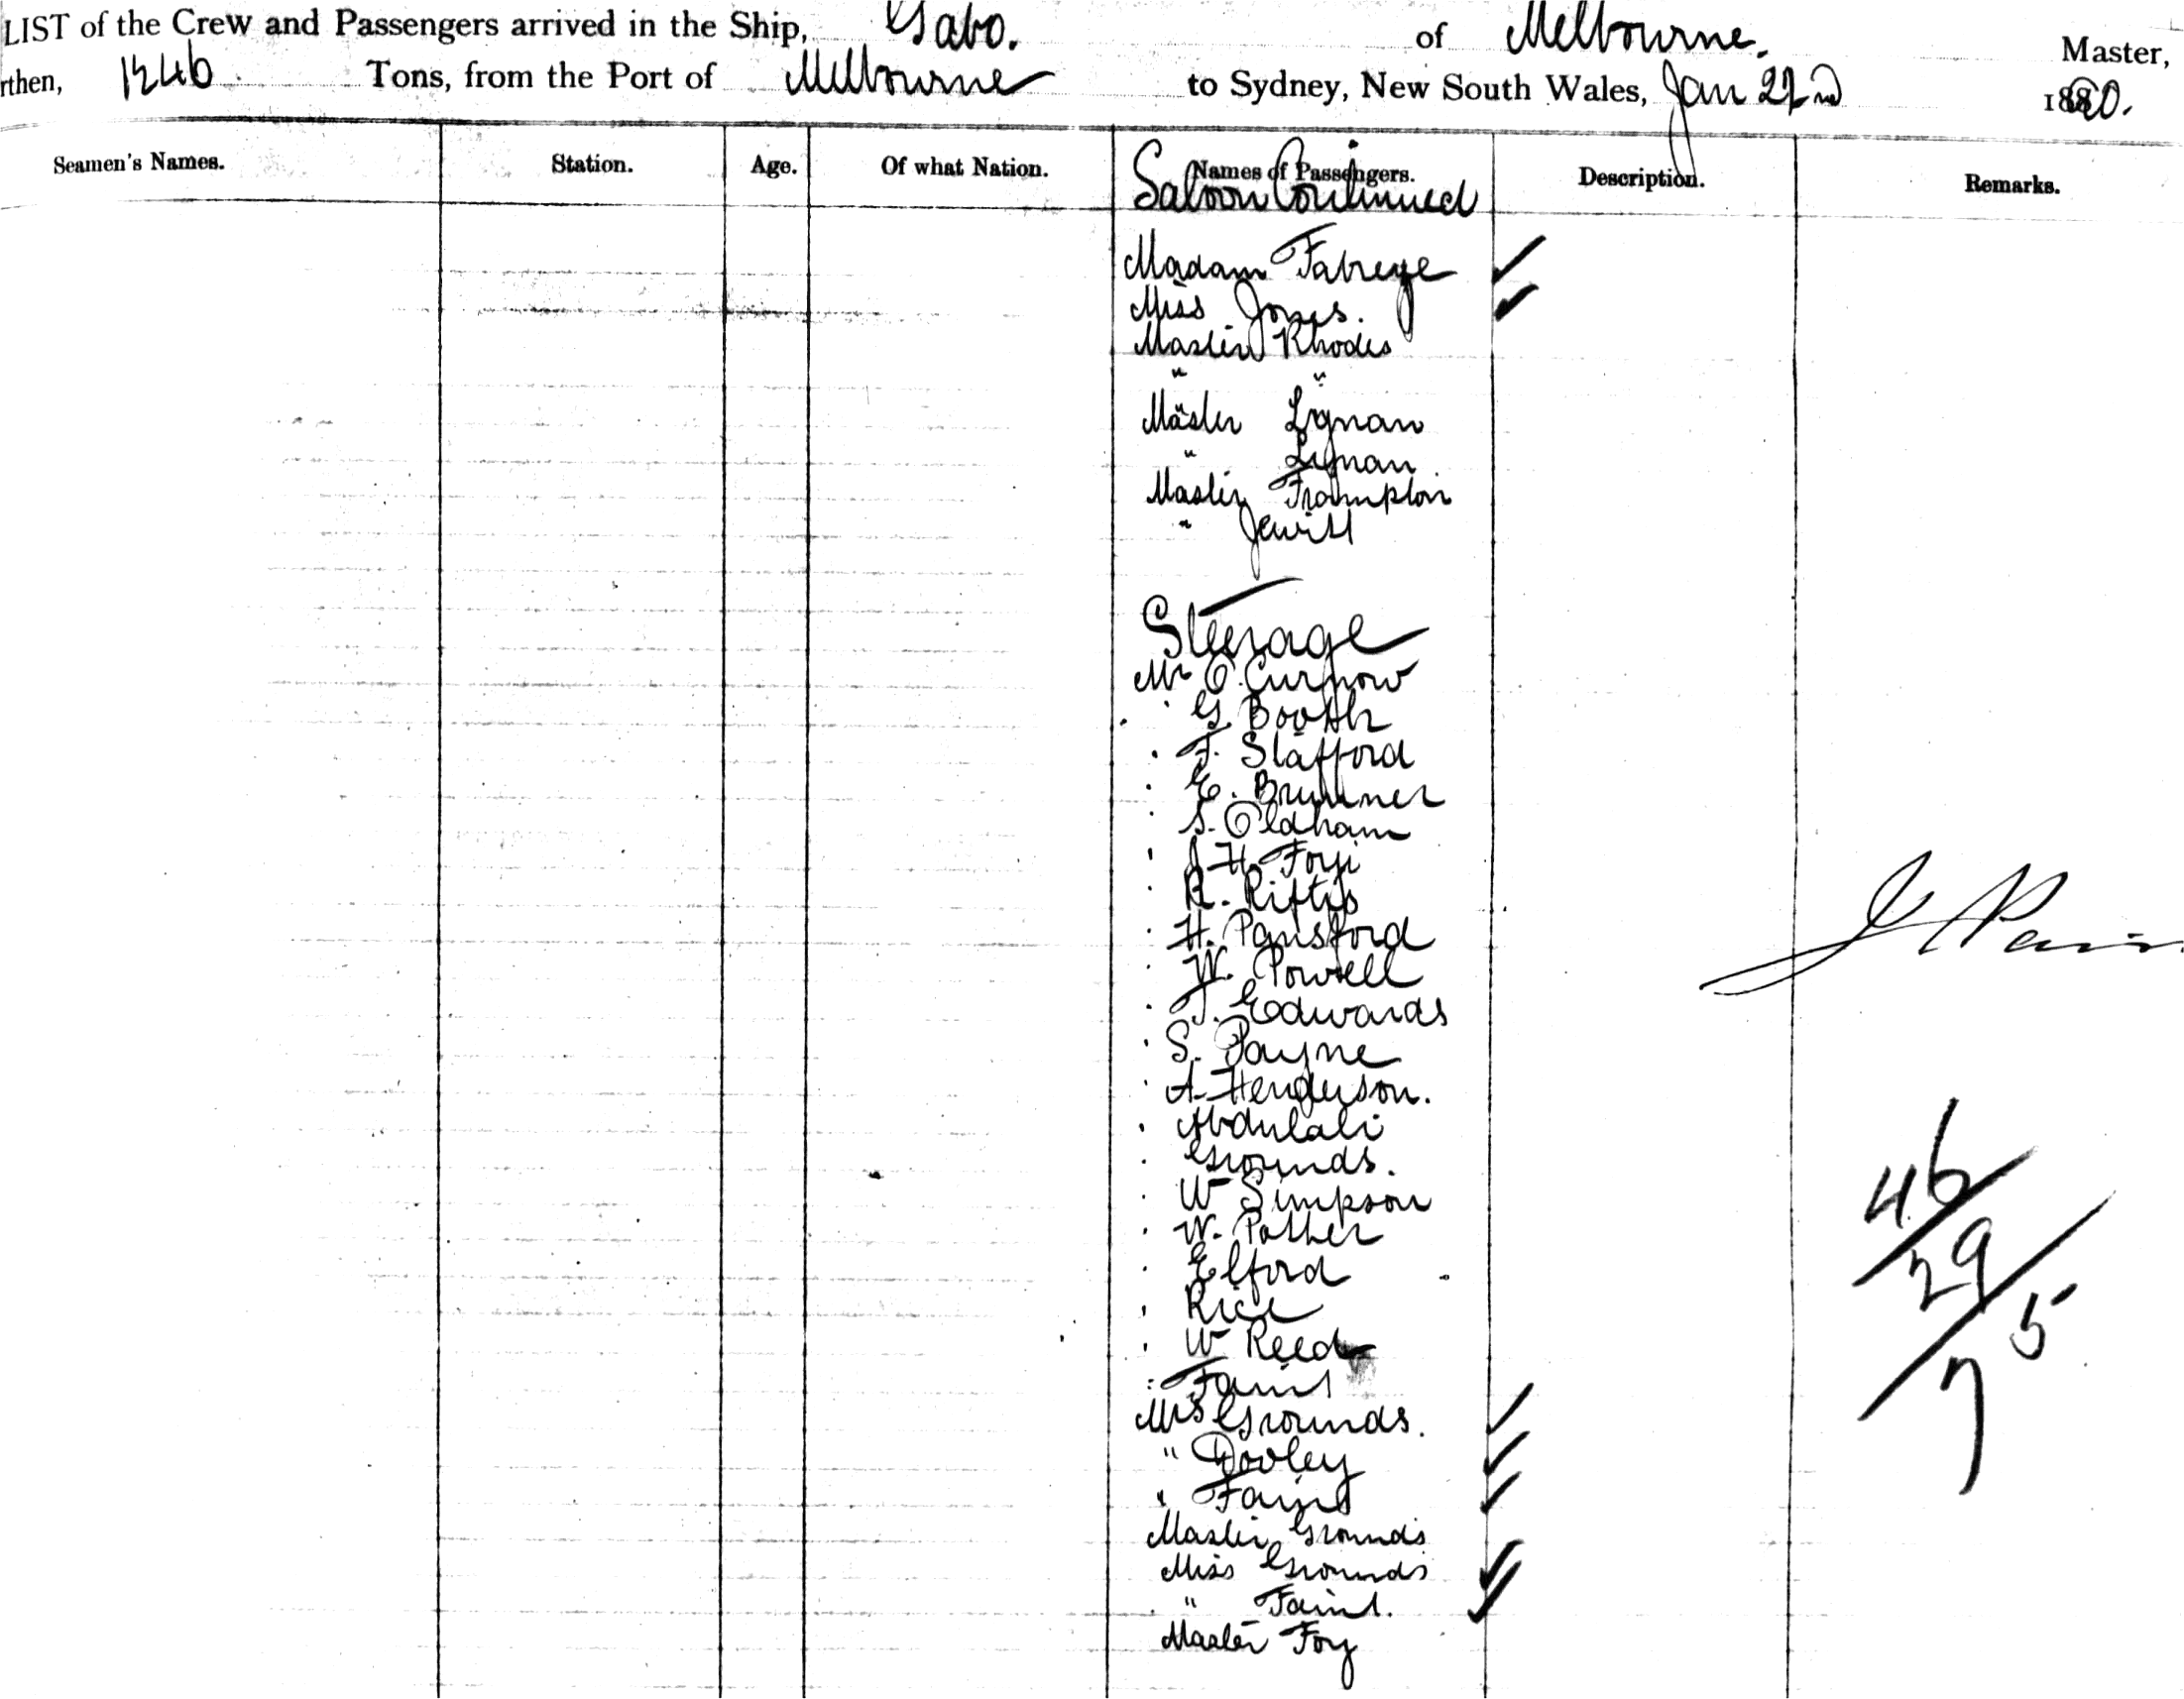 LIST of the Crew and Passengers arrived in the Ship, Gabo. of Melbourne. Master,
rthen, 1246 Tons, from the Port of Melbourne to Sydney, New South Wales, Jan 22nd 1880.
Seamen's Names. Station. Age. Of what Nation. Names of Passengers. Description. Remarks.
Saloon Continued
Madam Fabrege
Miss Jones.
Master Rhodes
" "
Master Lynan
" Lynan
Master Frampton
" Jewitt
Steerage
Mr O. Curnow
G. Booth
F. Stafford
E. Brunner
S. Oldham
J H. Foy
R.
H. Pansford
W. Powell
T. Edwards
S. Payne
A Henderson.
Abdulali
Grounds.
W Simpson
W. Potter
Elford
Rice
W Reed
Faint
Mrs Grounds.
" Dooley
" Faint
Master Grounds
Miss Grounds
" Faint.
Master Foy
46
29
75